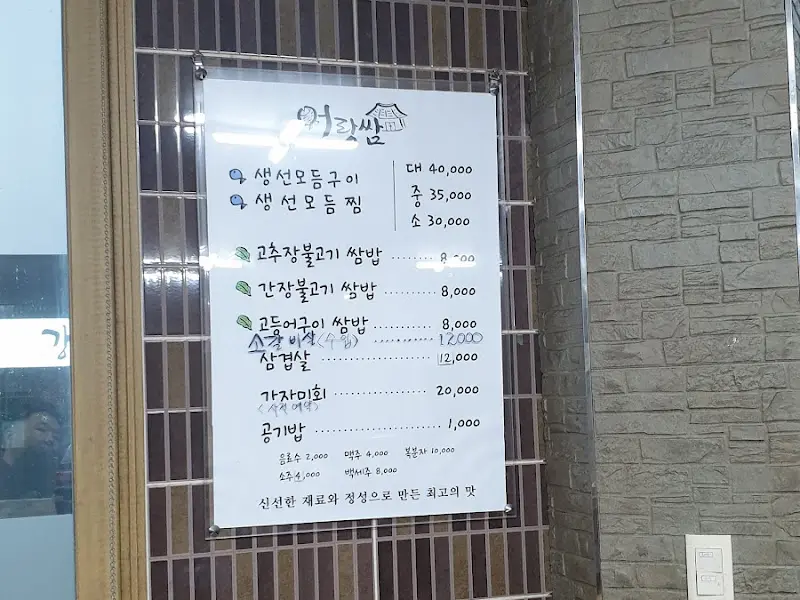 어랏쌈
생선모듬구이
생선모듬찜
대 40,000
중 35,000
소 30,000
고추장불고기 쌈밥 ········ 8,000
간장불고기 쌈밥 ········ 8,000
고등어구이 쌈밥 ········ 8,000
소갈비살(수입) ········ 12,000
삼겹살 ············ 12,000
가자미회 ············ 20,000
공기밥 ············ 1,000
음료수 2,000 맥주 4,000 복분자 10,000
소주 4,000 백세주 8,000
신선한 재료와 정성으로 만든 최고의 맛
강